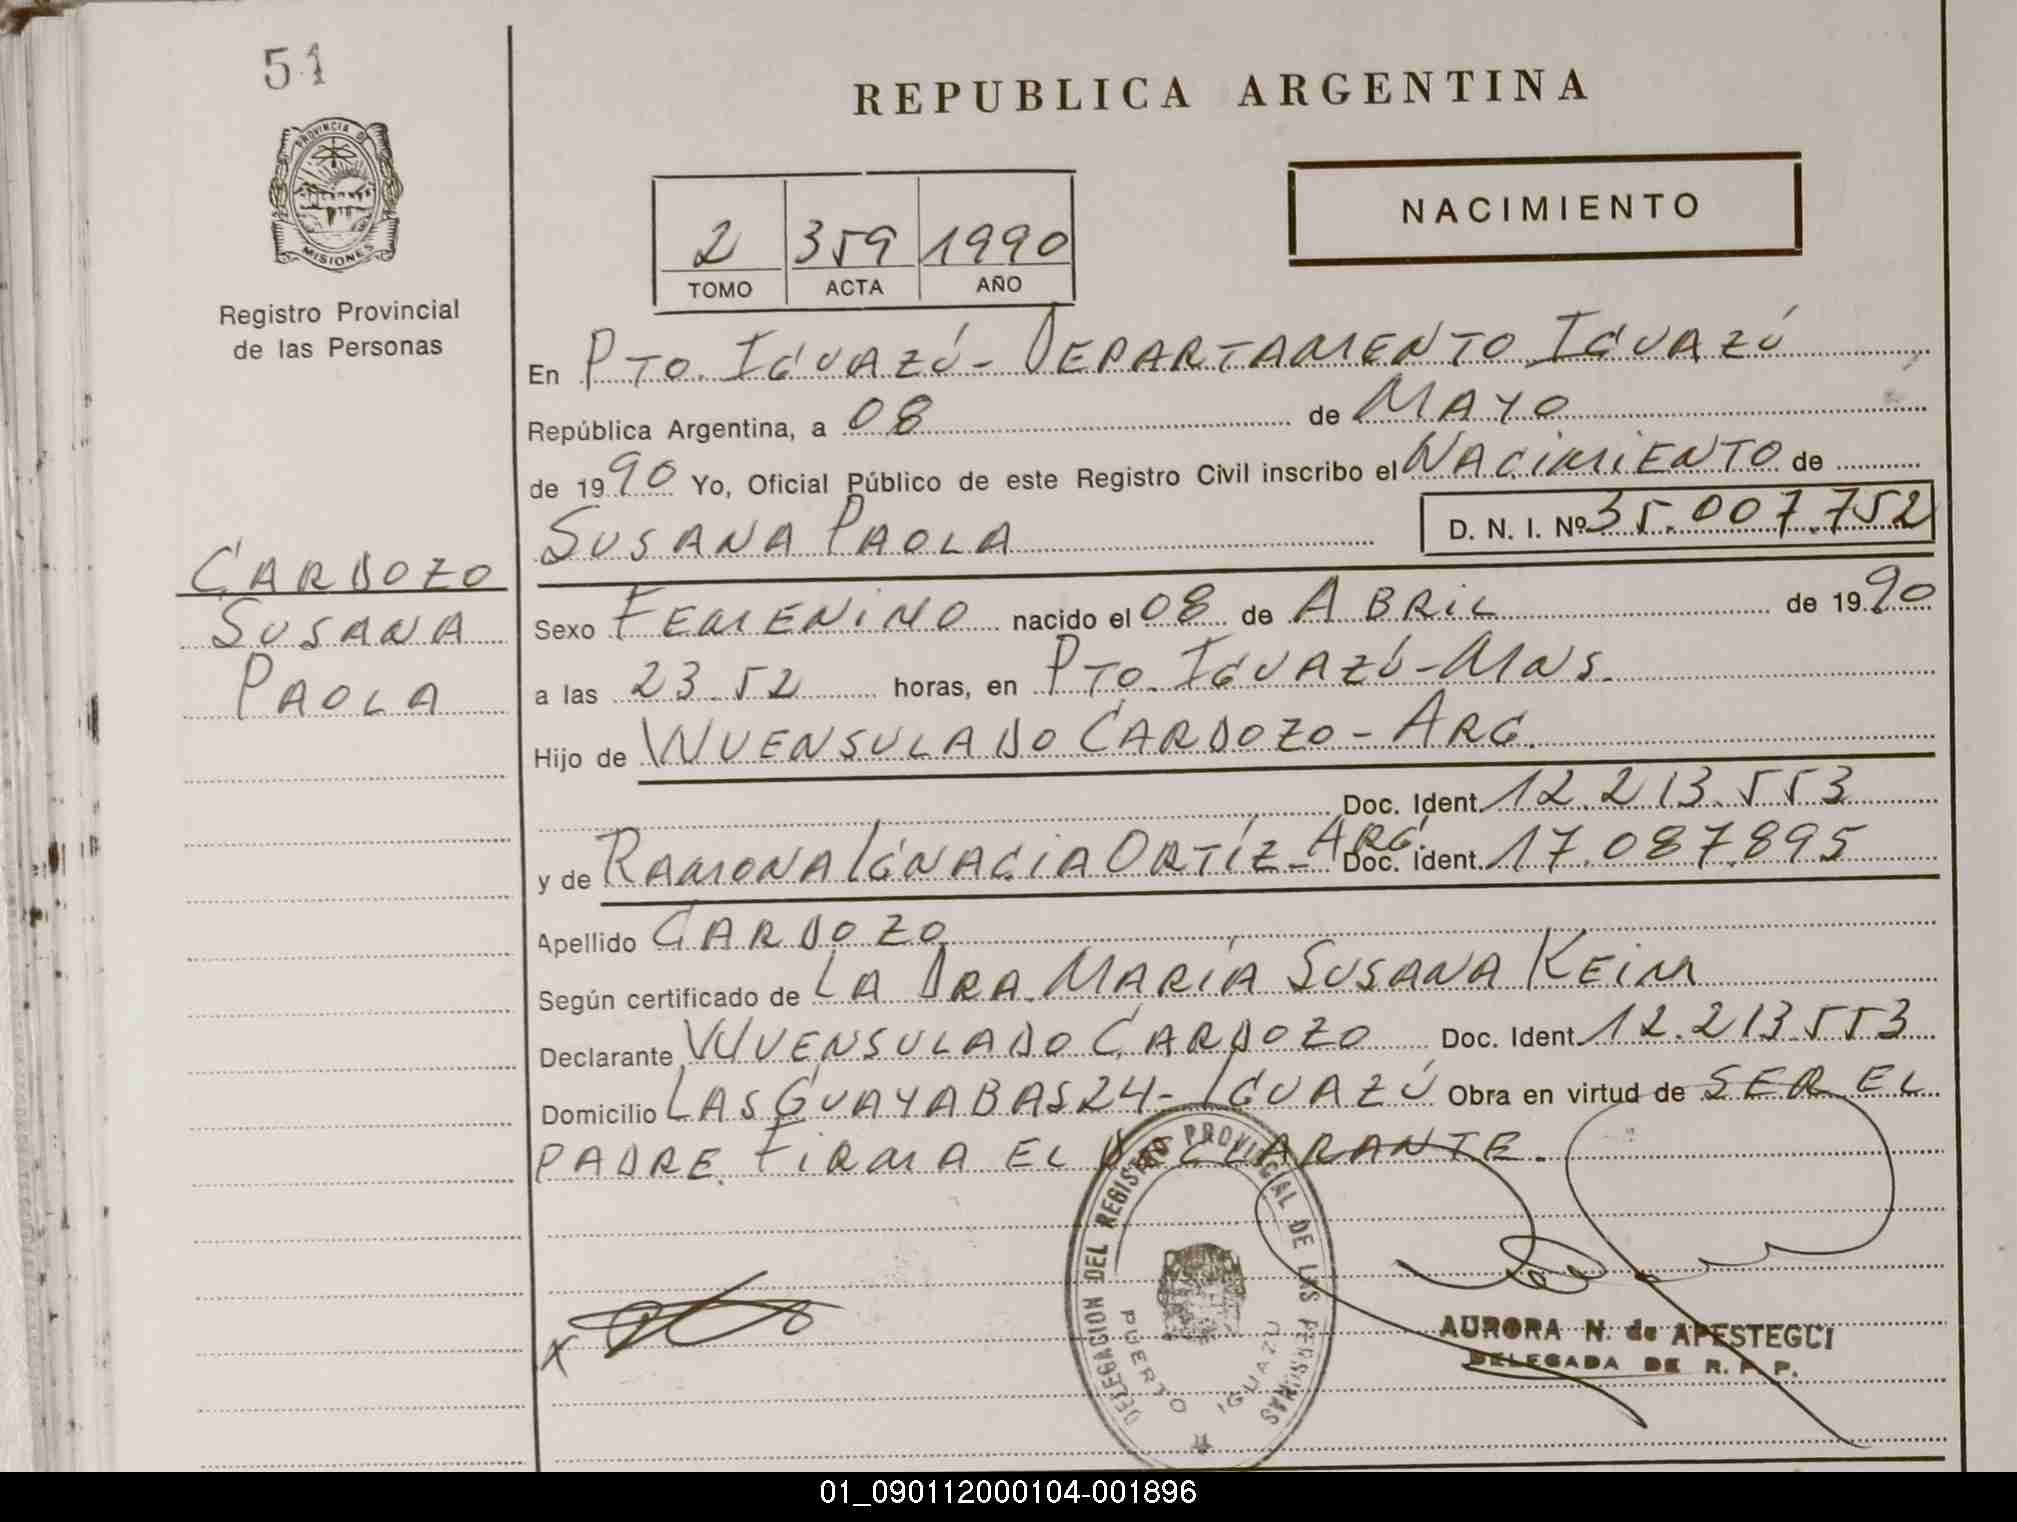 51
PROVINCIA DE
MISIONES
Registro Provincial
de las Personas
CARDOZO
SUSANA
PAOLA
REPUBLICA ARGENTINA
NACIMIENTO
2 359 1990
TOMO ACTA AÑO
En PTO. IGUAZÚ - DEPARTAMENTO IGUAZÚ
República Argentina, a 08 de MAYO
de 1990 Yo, Oficial Público de este Registro Civil inscribo el NACIMIENTO de
SUSANA PAOLA D. N. I. Nº 35.007.752
Sexo FEMENINO nacido el 08 de ABRIL de 1990
a las 23.52 horas, en PTO. IGUAZÚ - MNS.
Hijo de WUENSULADO CARDOZO - ARG.
Doc. Ident. 12.213.553
y de RAMONA IGNACIA ORTÍZ - ARG. Doc. Ident. 17.087.895
Apellido CARDOZO
Según certificado de LA DRA. MARÍA SUSANA KEIM
Declarante WUENSULADO CARDOZO Doc. Ident. 12.213.553
Domicilio LAS GUAYABAS 24 - IGUAZÚ Obra en virtud de SER EL
PADRE. FIRMA EL DECLARANTE.
X
DELEGACION DEL REGISTRO PROVINCIAL DE LAS PERSONAS
PUERTO IGUAZU
AURORA N. de APESTEGUI
DELEGADA DE R. P. P.
01_090112000104-001896